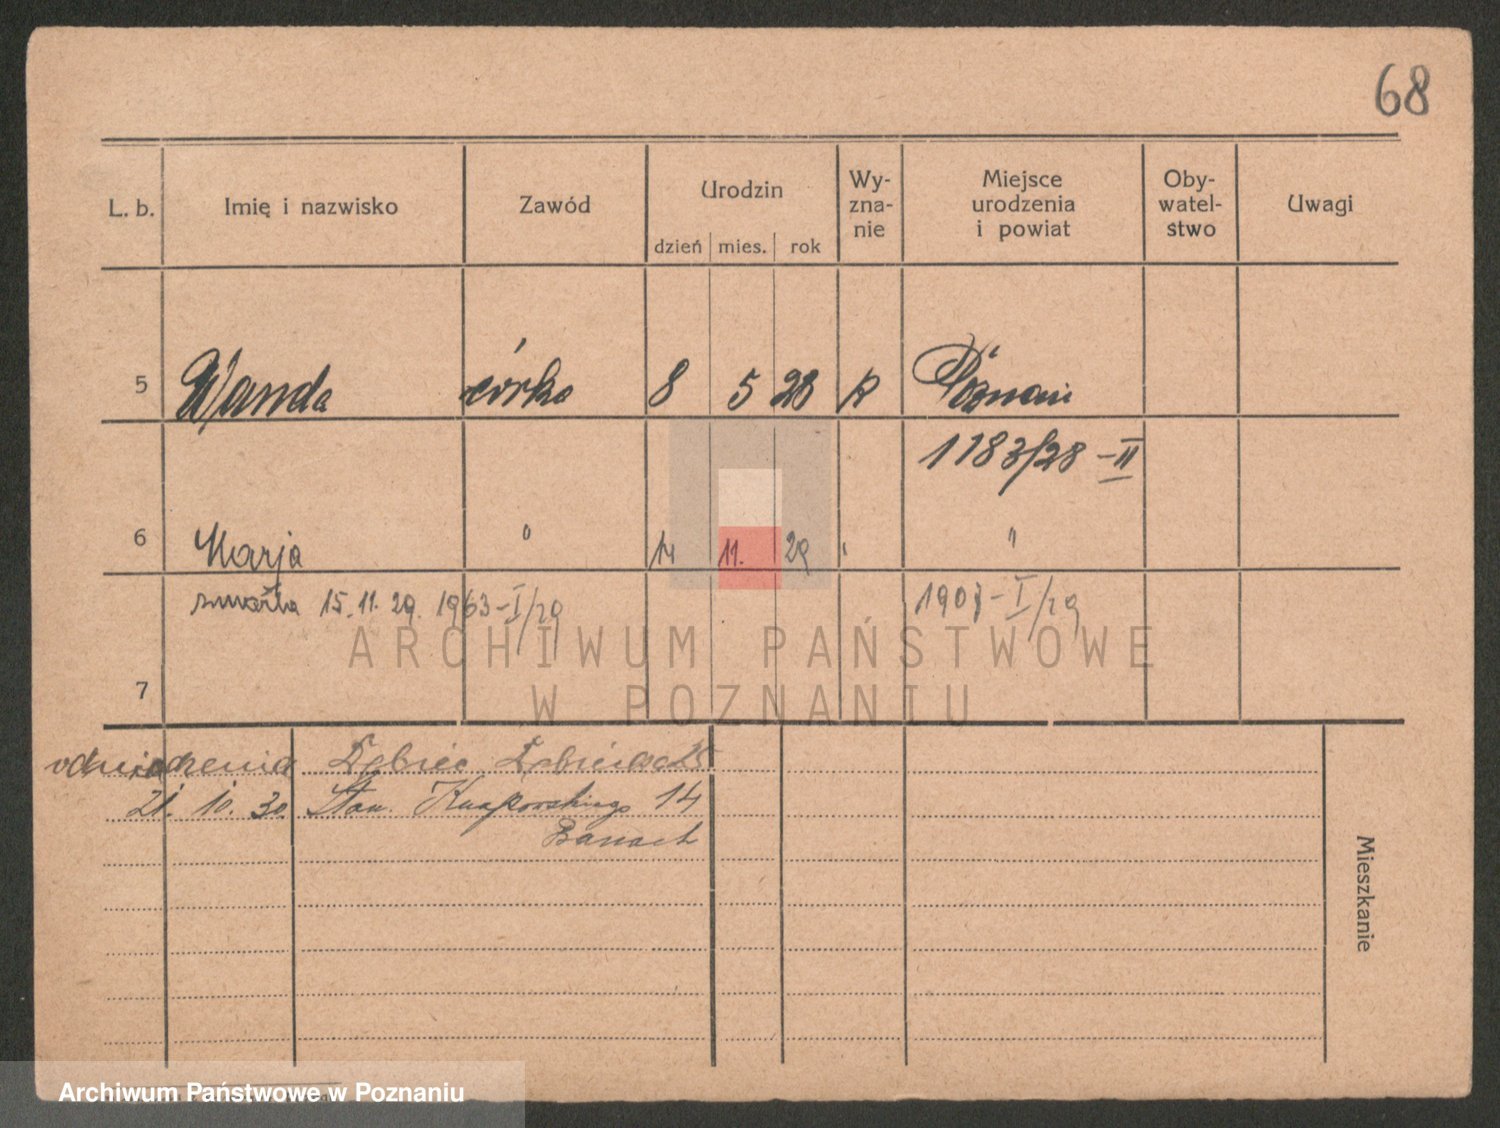 68
L. b. Imię i nazwisko Zawód Urodzin Wy-zna-nie Miejsce urodzenia i powiat Oby-watel-stwo Uwagi
dzień mies. rok
5 Wanda córka 8 5 28 R Poznań
1183/28 - II
6 Marja " 14 11. 29 " "
zmarła 15. 11. 29. 1963 - I/29 1907 - I/29
7
ARCHIWUM PAŃSTWOWE
W POZNANIU
od urodzenia Dębiec Dębiecka 25
21. 10. 30. Stan. Knapowskiego 14
Banach
Mieszkanie
Archiwum Państwowe w Poznaniu